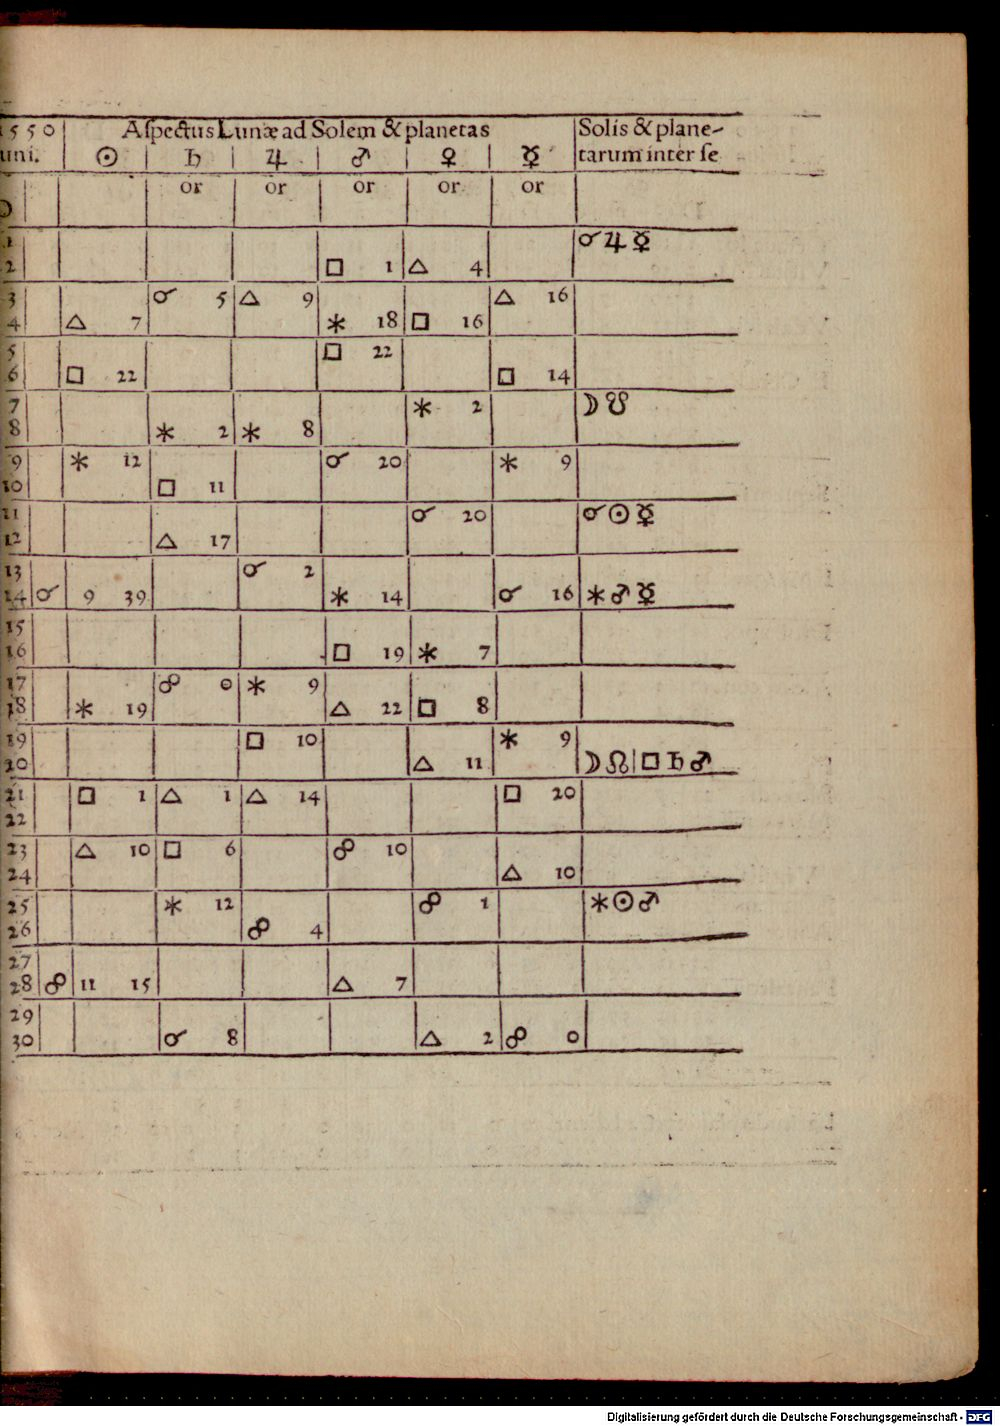 1550 Aspectus Lunæ ad Solem & planetas Solis & plane-
uni. ☉ ♄ ♃ ♂ ♀ ☿ tarum inter se
or or or or or
1 ☌ ♃ ☿
2 □ 1 △ 4
3 ☌ 5 △ 9 △ 16
4 △ 7 ⚹ 18 □ 16
5 □ 22
6 □ 22 □ 14
7 ⚹ 2 ☽ ☋
8 ⚹ 2 ⚹ 8
9 ⚹ 12 ☌ 20 ⚹ 9
10 □ 11
11 ☌ 20 ☌ ☉ ☿
12 △ 17
13 ☌ 2
14 ☌ 9 39 ⚹ 14 ☌ 16 ⚹ ♂ ☿
15
16 □ 19 ⚹ 7
17 ☍ 0 ⚹ 9
18 ⚹ 19 △ 22 □ 8
19 □ 10 ⚹ 9
20 △ 11 ☽ ☊ | □ ♄ ♂
21 □ 1 △ 1 △ 14 □ 20
22
23 △ 10 □ 6 ☍ 10
24 △ 10
25 ⚹ 12 ☍ 1 ⚹ ☉ ♂
26 ☍ 4
27
28 ☍ 11 15 △ 7
29
30 ☌ 8 △ 2 ☍ 0
Digitalisierung gefördert durch die Deutsche Forschungsgemeinschaft - DFG